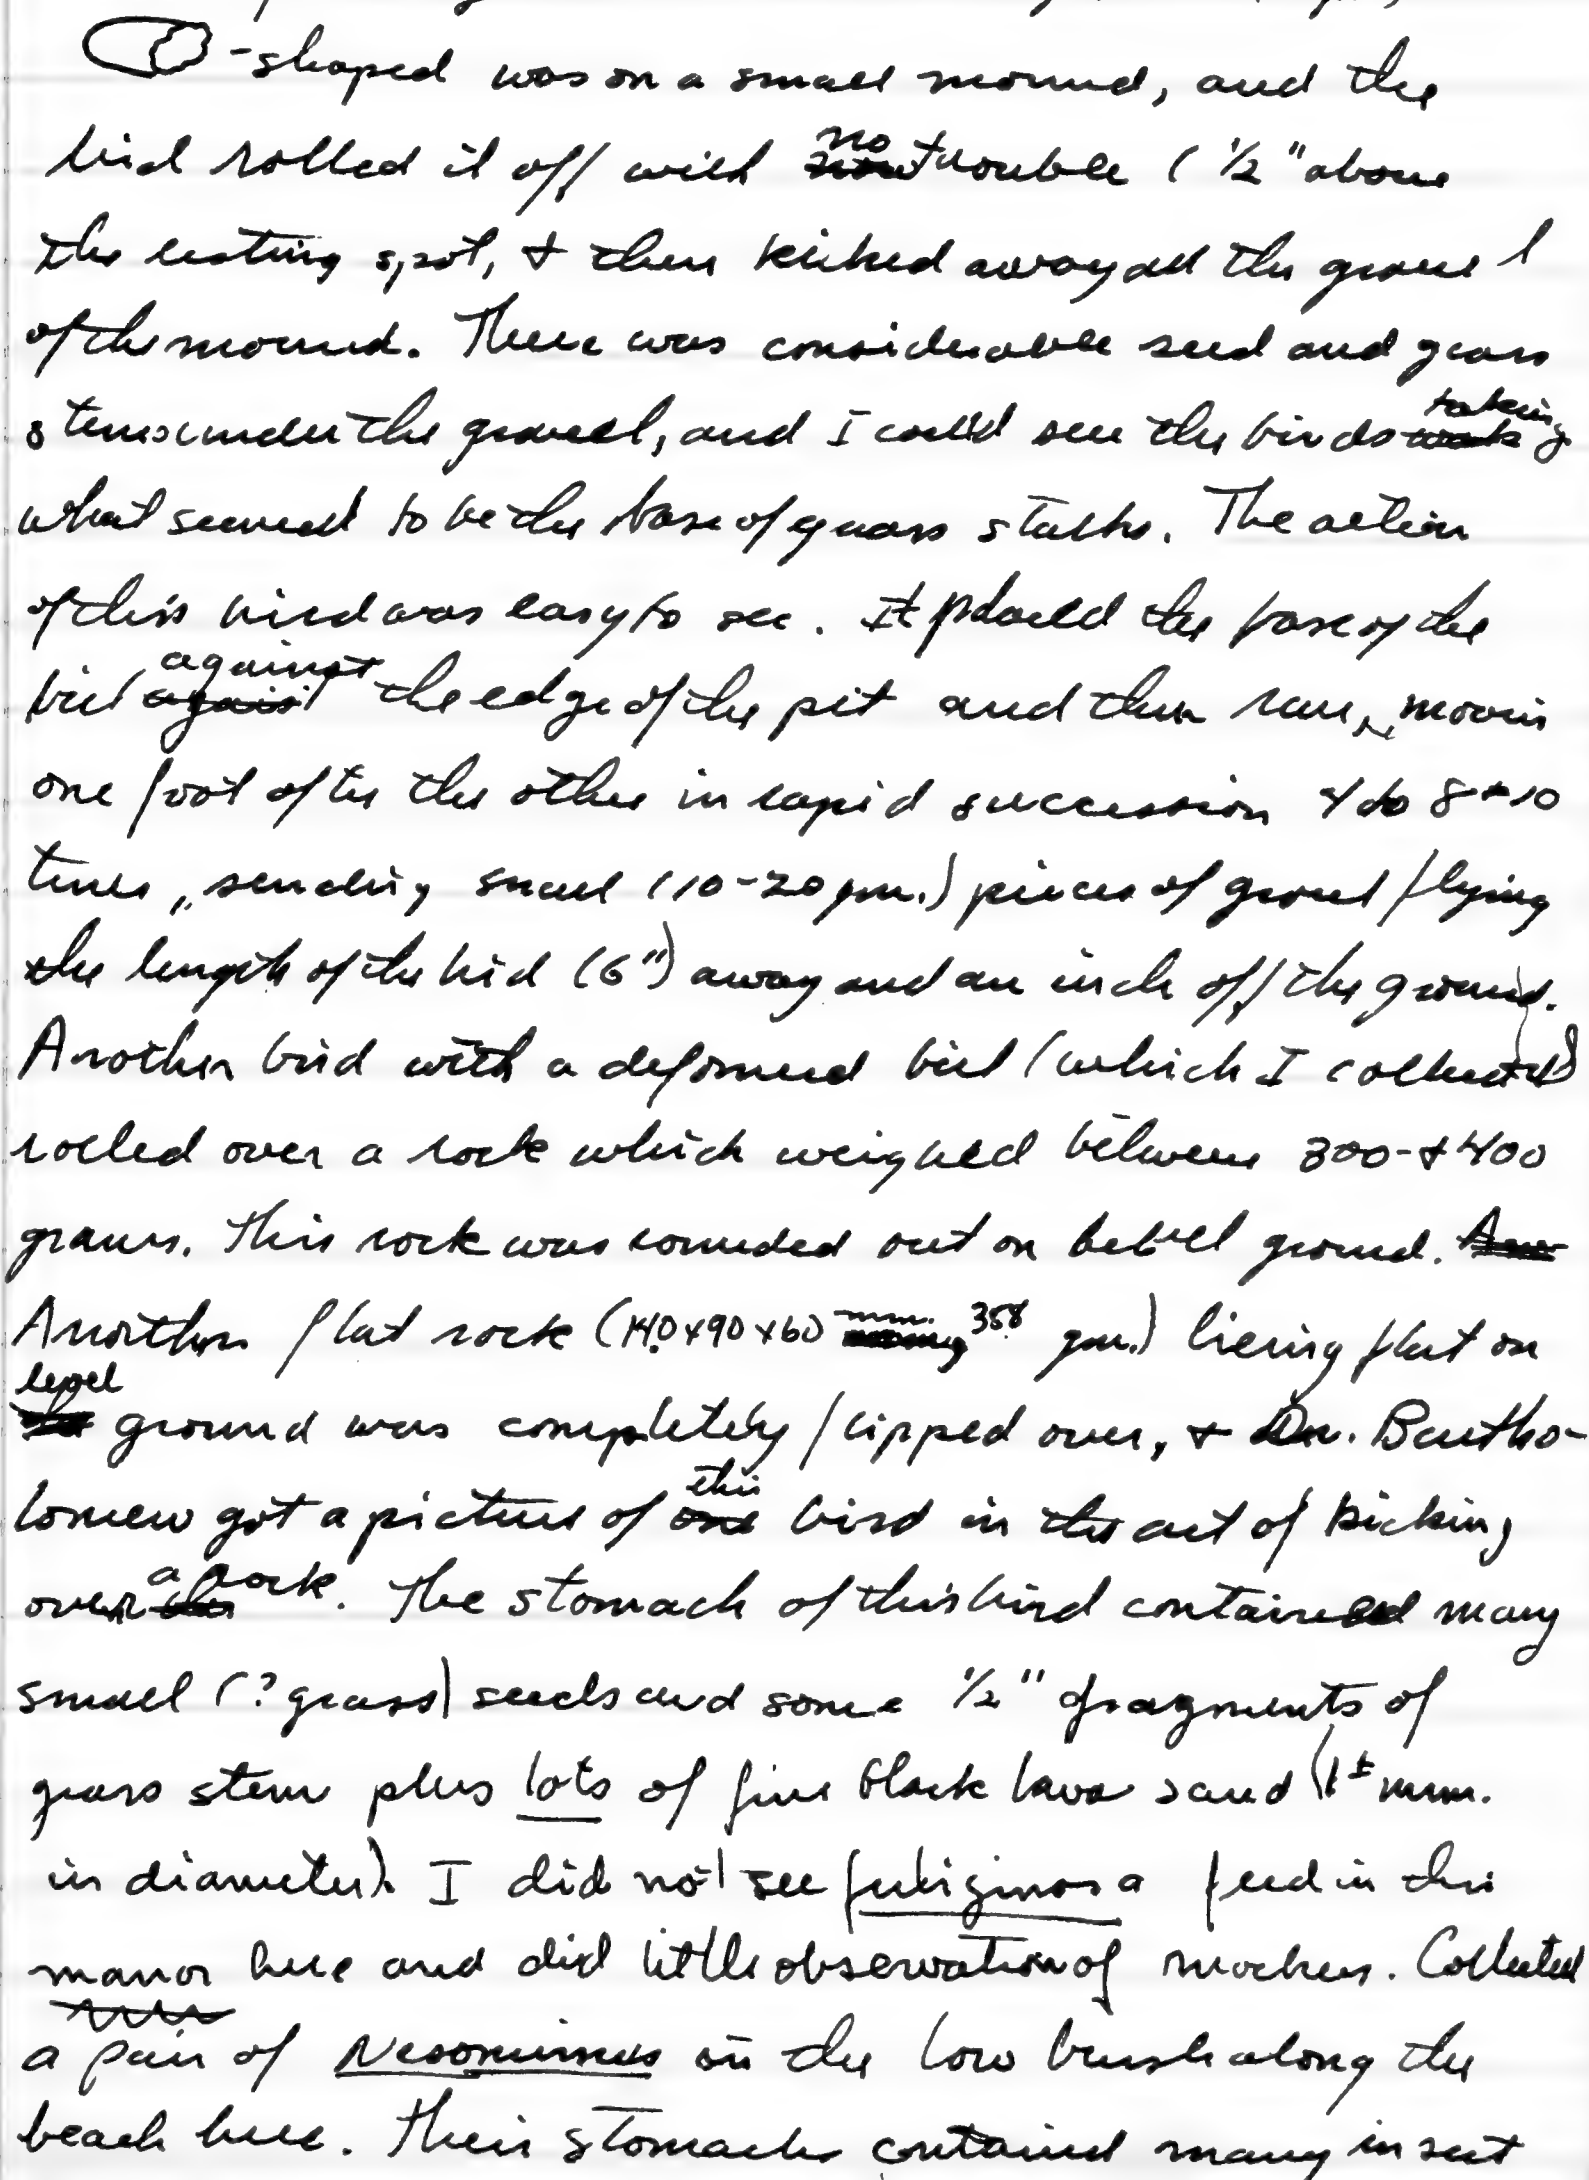 -shaped was on a small mound, and the
bird rolled it off with no trouble ( 1/2" above
the resting spot, + then kicked away all the gravel
of the mound. There was considerable seed and grass
stems under the gravel, and I could see the birds taking
what seemed to be the base of grass stalks. The action
of this bird was easy to see. It placed the base of the
bill against the edge of the pit and then ran, moving
one foot after the other in rapid succession 4 to 8 + 10
times, sending small (10-20 gm.) pieces of gravel flying
the length of the bird (6") away and an inch off the ground.
Another bird with a deformed bill (which I collected)
rolled over a rock which weighed between 300- + 400
grams. This rock was rounded out on level ground.
Another flat rock (140 x 90 x 60 mm. 358 gm.) lieing flat on
level ground was completely flipped over, + Dr. Bartho-
lomew got a picture of this bird in the act of kicking
over a rock. The stomach of this bird contained many
small (? grass) seeds and some 1/2" fragments of
grass stem plus lots of fine black lava sand (1± mm.
in diameter). I did not see fuliginosa feed in this
manor here and did little observation of mockers. Collected
a pair of Nesomimus in the low brush along the
beach here. Their stomachs contained many insect